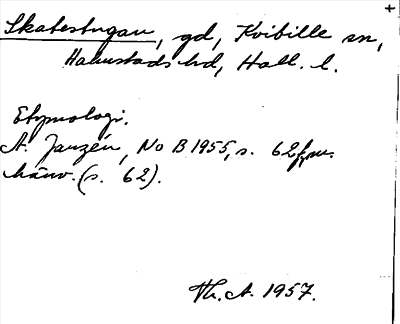 Skatestugan, gd, Kvibille sn,
Halmstads hd, Hall. l.
Etymologi.
A. Janzén, NoB 1955, s. 62f, m.
hänv. (s. 62).
Th. A. 1957.